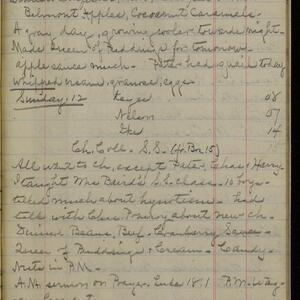 Belmont Apples, Cocoanut Caramels.
A gray day, growing cooler towards night.
Made Queen of Puddings for tomorrow
apple sauce much. Peter had a pain today
whipped cream, granose, eggs.
Sunday, 12 Keyes 08
Nelson 07
Ike 14
Ch. Coll. S.S. (4. Box 15)
All went to ch. except Peter, Chas & Harry
I taught Mrs Bairds S.S. class. 10 boys
talked much about hypnotism. had
talk with Chas. about new ch.
Beans, Beef, Cranberry Sauce
Queen of Puddings & Cream. Candy
Nuts in P.M.
A.M. sermon on Prayer. Luke 18:1. P.M.